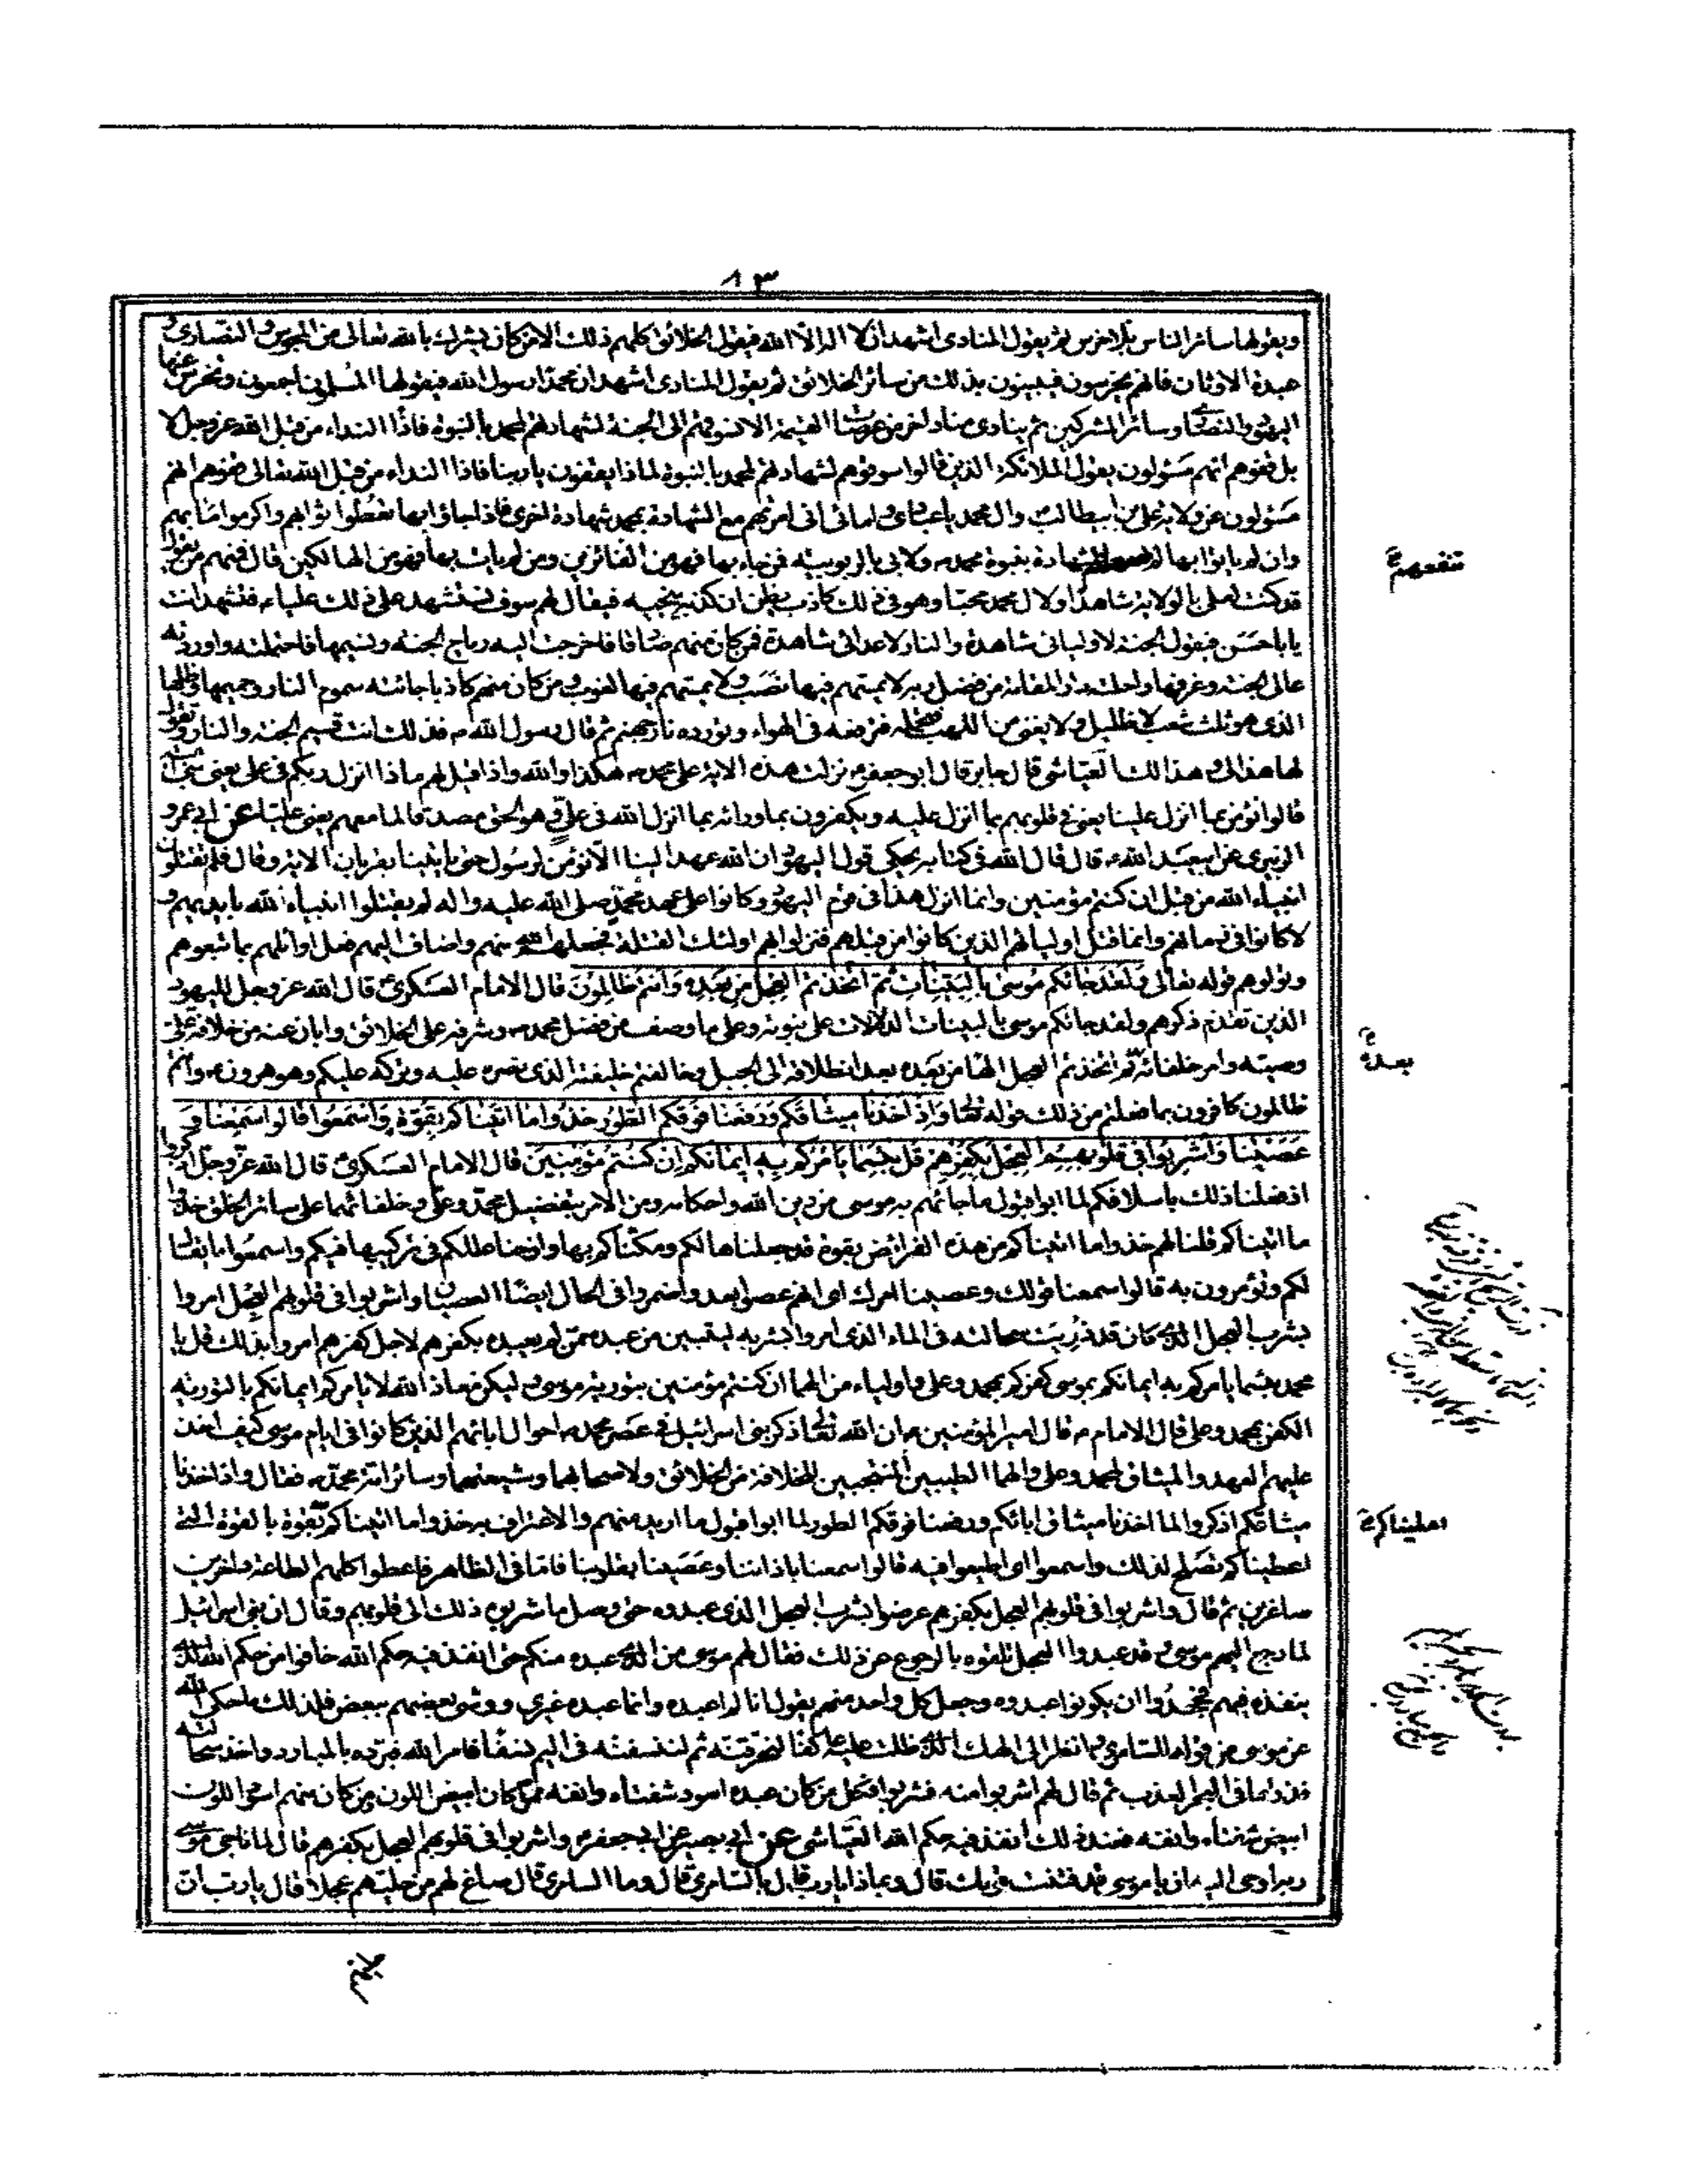 ١٣
ويقولها سائر الناس فلا يخرس ثم يقول المنادى اشهد ان لا اله الا الله فيقول الخلائق كلهم ذلك الا من كان يشرك بالله تعالى من المجوس والنصارى و
عبدة الاوثان فانهم يخرسون فيبينون بذلك من سائر الخلائق ثم يقول المنادى اشهد ان محمدا رسول الله فيقولها المسلمون اجمعون ويخرس عنها
اليهود والنصارى وسائر المشركين ثم ينادى مناد اخر من عرصات القيمة الا فسوقوهم الى الجنة لشهادتهم لمحمد بالنبوة فاذا النداء من قبل الله عز وجل لا
بل قفوهم انهم مسئولون يقول الملائكة الذين قالوا سوقوهم لشهادتهم لمحمد بالنبوة لماذا يقفون يا ربنا فاذا النداء من قبل الله تعالى قفوهم انهم
مسئولون عن ولاية على بن ابيطالب وال محمد يا عبادى وامائى انى امرتهم مع الشهادة بمحمد شهادة اخرى فاذا جاؤا بها فعظموا ثوابهم واكرموا مابهم
وان لم ياتوا بها لم تنفعهم الشهادة بنبوة محمد ولا لى بالربوبية فمن جاء بها فهو من الفائزين ومن لم يات بها فهو من الهالكين قال فمنهم من يقول
قد كنت لعلى بالولاية شاهدا ولال محمد محبا وهو فى ذلك كاذب يظن ان كذبه ينجيه فيقال لهم سوف نستشهد على ذلك عليا فتشهد انت
يا ابا حسن فيقول الجنة لاوليائى شاهدة والنار لاعدائى شاهدة فمن كان منهم صادقا فاخرجت اليه رياح الجنة ونسيمها فاحتملته واوردته
عالى الجنة وغرفها واحلته دار المقامة من فضل ربه لا يمسهم فيها نصب ولا يمسهم فيها لغوب ومن كان منهم كاذبا جائته سموم النار وحميمها وظلها
الذى هو ثلث شعب لا ظليل ولا يغنى من اللهب فتحمله فترفعه فى الهواء وتورده نار جهنم ثم قال رسول الله فذلك انت قسيم الجنة والنار تقول
لها هذا لى وهذا لك العياشى قال جابر قال ابو جعفر نزلت هذه الاية على محمد هكذا والله واذا قيل لهم ماذا انزل ربكم فى على يعنى بنى امية
قالوا نؤمن بما انزل علينا يعنى فى قلوبهم بما انزل عليه ويكفرون بما ورائه بما انزل الله فى على وهو الحق مصدقا لما معهم يعنى عليا عن ابى عمرو
الزبيرى عن ابيعبد الله قال قال الله فى كتابه يحكى قول اليهود ان الله عهد الينا الا نؤمن لرسول حتى ياتينا بقربان الاية وقال فلم تقتلون
انبياء الله من قبل ان كنتم مؤمنين وانما انزل هذا فى قوم اليهود وكانوا على عهد محمد صلى الله عليه واله لم يقتلوا انبياء الله بايديهم و
لا كانوا فى زمانهم وانما قتل اوليائهم الذين كانوا من قبلهم فنزلوا بهم اولئك القتلة فجعلهم الله منهم واضاف اليهم فعل اوائلهم بما تبعوهم
وتولوهم قوله تعالى ولقد جائكم موسى بالبينات ثم اتخذتم العجل من بعده وانتم ظالمون قال الامام العسكرى قال الله عز وجل لليهود
الذين تقدم ذكرهم ولقد جائكم موسى بالبينات الدلالات على نبوته وعلى ما وصف من فضل محمد وشرفه على الخلائق وابان عنه من خلافة على
وصيته وامر خلفائه ثم اتخذتم العجل الها من بعده بعد انطلاقه الى الجبل وخالفتم خليفته الذى نص عليه وتركه عليكم وهو هرون وانتم
ظالمون كافرون بما فعلتم من ذلك قوله تعالى واذ اخذنا ميثاقكم ورفعنا فوقكم الطور خذوا ما اتيناكم بقوة واسمعوا قالوا سمعنا و
عصينا واشربوا فى قلوبهم العجل بكفرهم قل بئسما يامركم به ايمانكم ان كنتم مؤمنين قال الامام العسكرى قال الله عز وجل اذكروا
اذ فعلنا ذلك باسلافكم لما ابوا قبول ما جائهم به موسى من دين الله واحكامه ومن الامر بتفضيل محمد وعلى وخلفائهما على سائر الخلق خذوا
ما اتيناكم قلنا لهم خذوا ما اتيناكم من هذه الفرائض بقوة قد جعلناها لكم ومكناكم بها وازحنا عللكم فى تركيبها فيكم واسمعوا ما يقال
لكم وتؤمرون به قالوا سمعنا قولك وعصينا امرك اى انهم عصوا بعد واضمروا فى الحال ايضا العصيان واشربوا فى قلوبهم العجل امروا
بشرب العجل الذى كان قد ذريت سحالته فى الماء الذى امروا بشربه ليتبين من عبده ممن لم يعبده بكفرهم لاجل كفرهم امروا بذلك قل يا
محمد بئسما يامركم به ايمانكم بموسى كفركم بمحمد وعلى واولياء من الهما ان كنتم مؤمنين بتورية موسى وليكن معاذ الله لا يامركم ايمانكم بالتورية
الكفر بمحمد وعلى قال الامام قال امير المؤمنين ان الله تعالى ذكر بنى اسرائيل فى عصر محمد احوال ابائهم الذين كانوا فى ايام موسى كيف اخذ
عليهم العهد والميثاق لمحمد وعلى والهما الطيبين المنتجبين للخلافة من الخلائق ولاصحابهما وشيعتهما وسائر امة محمد فقال واذ اخذنا
ميثاقكم اذكروا لما اخذنا ميثاق ابائكم ورفعنا فوقكم الطور لما ابوا قبول ما اريد منهم والاعتراف به خذوا ما اتيناكم بقوة بالقوة التى
اعطيناكم تصلح لذلك واسمعوا اى اطيعوا فيه قالوا سمعنا باذاننا وعصينا بقلوبنا فاما فى الظاهر فاعطوا كلهم الطاعة داخرين
صاغرين ثم قال واشربوا فى قلوبهم العجل بكفرهم عرضوا لشرب العجل الذى عبدوه حتى وصل ما شربوه ذلك الى قلوبهم وقال ان بنى اسرائيل
لما رجع اليهم موسى وقد عبدوا العجل تلقوه بالرجوع عن ذلك فقال لهم موسى من الذى عبده منكم حتى انفذ فيه حكم الله خافوا من حكم الله الذى
ينفذه فيهم فجحدوا ان يكونوا عبدوه وجعل كل واحد منهم يقول انا لم اعبده وانما عبده غيرى ووشى بعضهم ببعض فلذلك ما حكى الله
عن موسى من قوله للسامرى وانظر الى الهك الذى ظلت عليه عاكفا لنحرقنه ثم لننسفنه فى اليم نسفا فامر الله فبرده بالمبارد واخذ سحالته
فذراها فى البحر العذب ثم قال لهم اشربوا منه فشربوا فكل من كان عبده اسود شفتاه وانفه ممن كان ابيض اللون ومن كان منهم اسود اللون
ابيض شفتاه وانفه فعند ذلك انفذ فيهم حكم الله العياشى عن ابى بصير عن ابى جعفر واشربوا فى قلوبهم العجل بكفرهم قال لما ناجى موسى
ربه اوحى اليه ان يا موسى قد فتنت قومك قال وبماذا يا رب قال بالسامرى قال وما السامرى قال صاغ لهم من حليهم عجلا قال يا رب ان
تنفعهم
بعده
اعطيناكم
حليهم